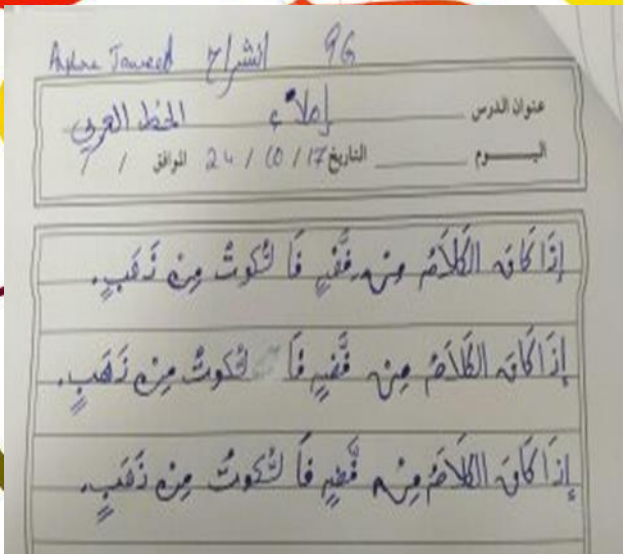 انشراح 9G
عنوان الدرس إملاء الخط العربي
اليوم التاريخ 24 / 10 / 17 الموافق / /
إِذَا كَانَ الْكَلَامُ مِنْ فَضَّةٍ فَا لسُّكُوتُ مِنْ ذَهَبٍ.
إِذَا كَانَ الْكَلَامُ مِنْ فَضَّةٍ فَا لسُّكُوتُ مِنْ ذَهَبٍ.
إِذَا كَانَ الْكَلَامُ مِنْ فَضَّةٍ فَا لسُّكُوتُ مِنْ ذَهَبٍ.